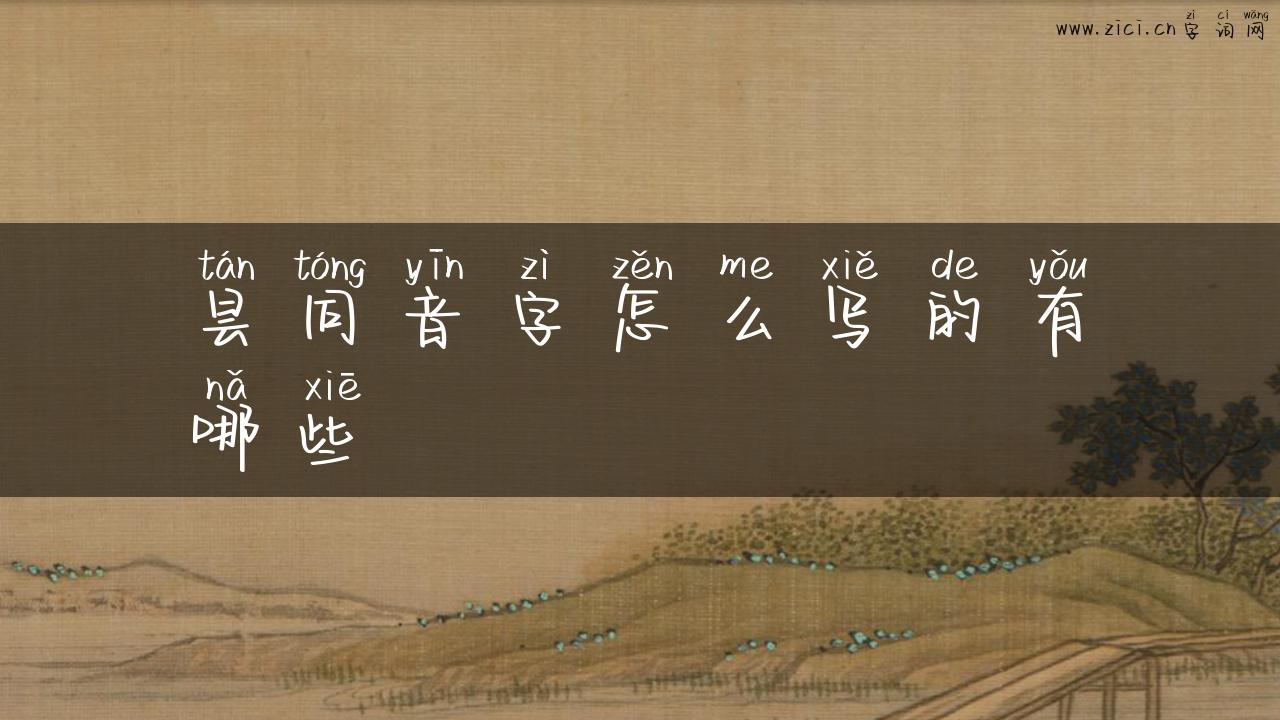 zì cí wǎng
www.zici.cn字词网
tán tóng yīn zì zěn me xiě de yǒu
昙同音字怎么写的有
nǎ xiē
哪些